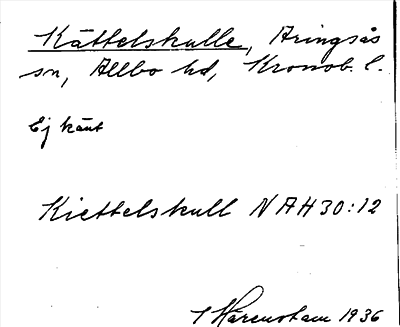 Kättelskulle, Aringsås
sn, Allbo hd, Kronob. l.
Ej känt
Kiettelskull NAH 30:12
Harenstam 1936